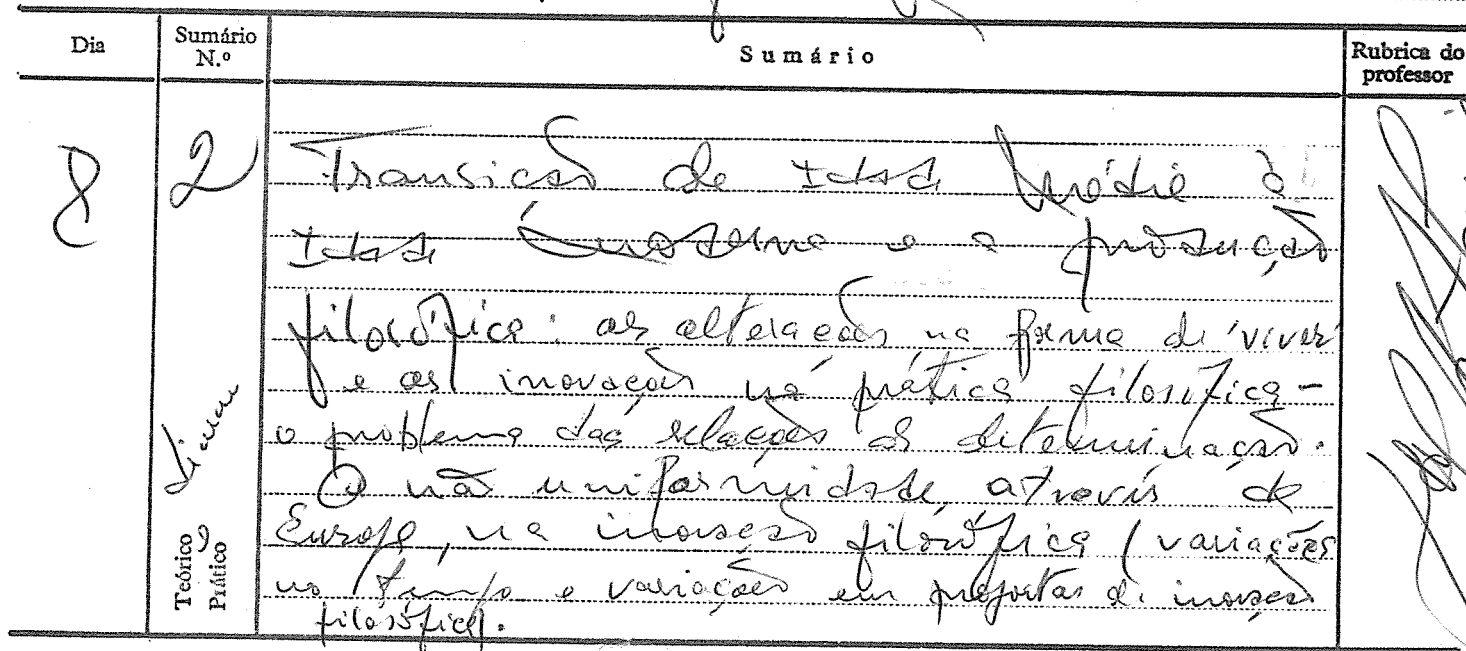 Dia
Sumário N.º
Sumário
Rubrica do professor
8
2
Transição da Idade Média à
Idade Moderna e a produção
filosófica: as alterações na forma de viver
e as inovações na prática filosófica -
o problema das relações de determinação.
A não uniformidade, através da
Europa, na inovação filosófica (variações
no tempo e variações em propostas de inovação
filosófica).
Teórico
Prático